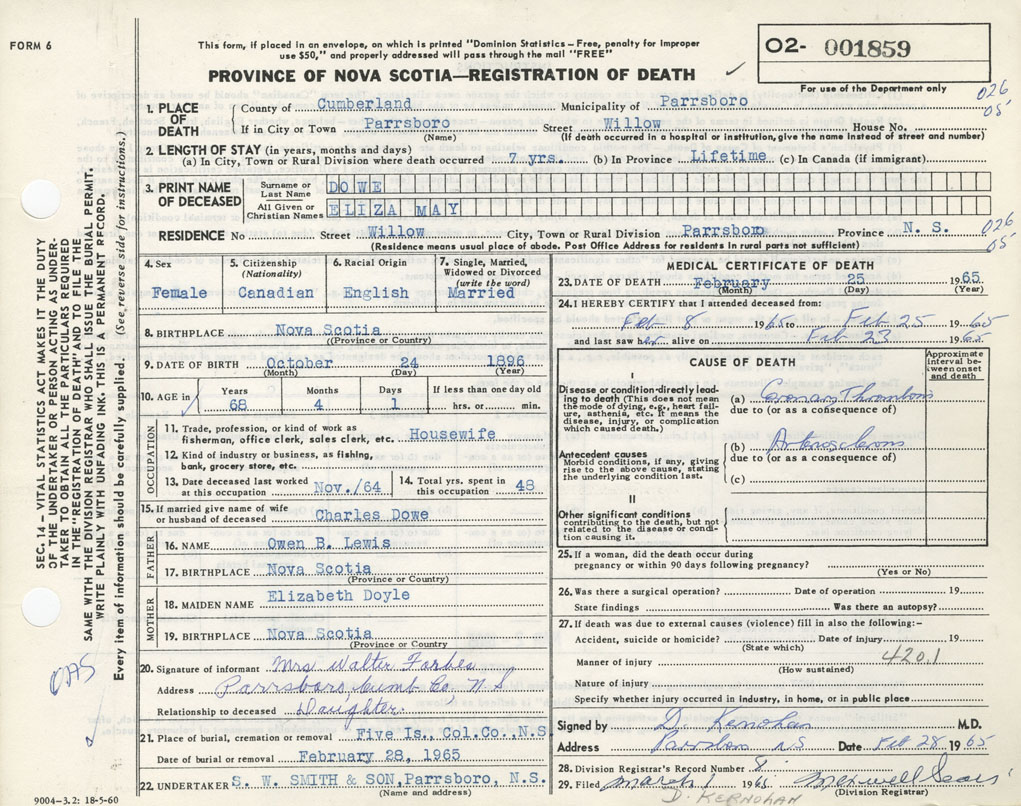 FORM 6
This form, if placed in an envelope, on which is printed "Dominion Statistics – Free, penalty for improper
use $50," and properly addressed will pass through the mail "FREE"
PROVINCE OF NOVA SCOTIA—REGISTRATION OF DEATH ✓
O2- 001859
For use of the Department only
026
05
1. PLACE OF DEATH
County of Cumberland Municipality of Parrsboro
If in City or Town Parrsboro Street Willow House No.
(Name) (If death occurred in a hospital or institution, give the name instead of street and number)
2. LENGTH OF STAY (in years, months and days)
(a) In City, Town or Rural Division where death occurred 7 yrs. (b) In Province Lifetime (c) In Canada (if immigrant)
3. PRINT NAME OF DECEASED
Surname or Last Name DOWE
All Given or Christian Names ELIZA MAY
RESIDENCE No Street Willow City, Town or Rural Division Parrsboro Province N. S.
(Residence means usual place of abode. Post Office Address for residents in rural parts not sufficient)
026
05
4. Sex
Female
5. Citizenship (Nationality)
Canadian
6. Racial Origin
English
7. Single, Married, Widowed or Divorced (write the word)
Married
8. BIRTHPLACE Nova Scotia
(Province or Country)
9. DATE OF BIRTH October 24 1896
(Month) (Day) (Year)
10. AGE in Years Months Days If less than one day old
68 4 1 hrs. or min.
OCCUPATION
11. Trade, profession, or kind of work as
fisherman, office clerk, sales clerk, etc. Housewife
12. Kind of industry or business, as fishing,
bank, grocery store, etc.
13. Date deceased last worked at this occupation Nov./64
14. Total yrs. spent in this occupation 48
15. If married give name of wife
or husband of deceased Charles Dowe
FATHER
16. NAME Owen B. Lewis
17. BIRTHPLACE Nova Scotia
(Province or Country)
MOTHER
18. MAIDEN NAME Elizabeth Doyle
19. BIRTHPLACE Nova Scotia
(Province or Country)
20. Signature of informant Mrs Walter Forbes
Address Parrsboro Cumb Co, N S
Relationship to deceased Daughter.
21. Place of burial, cremation or removal Five Is., Col.Co.,N.S
Date of burial or removal February 28, 1965
22. UNDERTAKER S. W. SMITH & SON, Parrsboro, N.S.
(Name and address)
9004-3.2: 18-5-60
MEDICAL CERTIFICATE OF DEATH
23. DATE OF DEATH February 25 1965
(Month) (Day) (Year)
24. I HEREBY CERTIFY that I attended deceased from:
Feb 8 1965 to Feb 25 1965
and last saw her alive on Feb 23 1965
CAUSE OF DEATH
Approximate interval between onset and death
I
Disease or condition directly leading to death (This does not mean the mode of dying, e.g., heart failure, asthenia, etc. It means the disease, injury, or complication which caused death.)
(a) Coronary Thrombosis
due to (or as a consequence of)
Antecedent causes
Morbid conditions, if any, giving rise to the above cause, stating the underlying condition last.
(b) Arterosclerosis
due to (or as a consequence of)
(c)
II
Other significant conditions
contributing to the death, but not related to the disease or condition causing it.
25. If a woman, did the death occur during
pregnancy or within 90 days following pregnancy?
(Yes or No)
26. Was there a surgical operation? Date of operation 19
State findings Was there an autopsy?
27. If death was due to external causes (violence) fill in also the following:-
Accident, suicide or homicide? Date of injury 19
(State which)
Manner of injury 420.1
(How sustained)
Nature of injury
Specify whether injury occurred in industry, in home, or in public place
Signed by D. Kernohan M.D.
Address Parrsboro NS Date Feb 28 1965
28. Division Registrar's Record Number 8
29. Filed March 1 1965 Maxwell Sears
(Division Registrar)
D. KERNOHAN
SEC. 14 – VITAL STATISTICS ACT MAKES IT THE DUTY
OF THE UNDERTAKER OR PERSON ACTING AS UNDER-
TAKER TO OBTAIN ALL THE PARTICULARS REQUIRED
IN THE "REGISTRATION OF DEATH" AND TO FILE THE
SAME WITH THE DIVISION REGISTRAR WHO SHALL ISSUE THE BURIAL PERMIT.
WRITE PLAINLY WITH UNFADING INK. THIS IS A PERMANENT RECORD.
Every item of information should be carefully supplied. (See reverse side for instructions.)
OAS